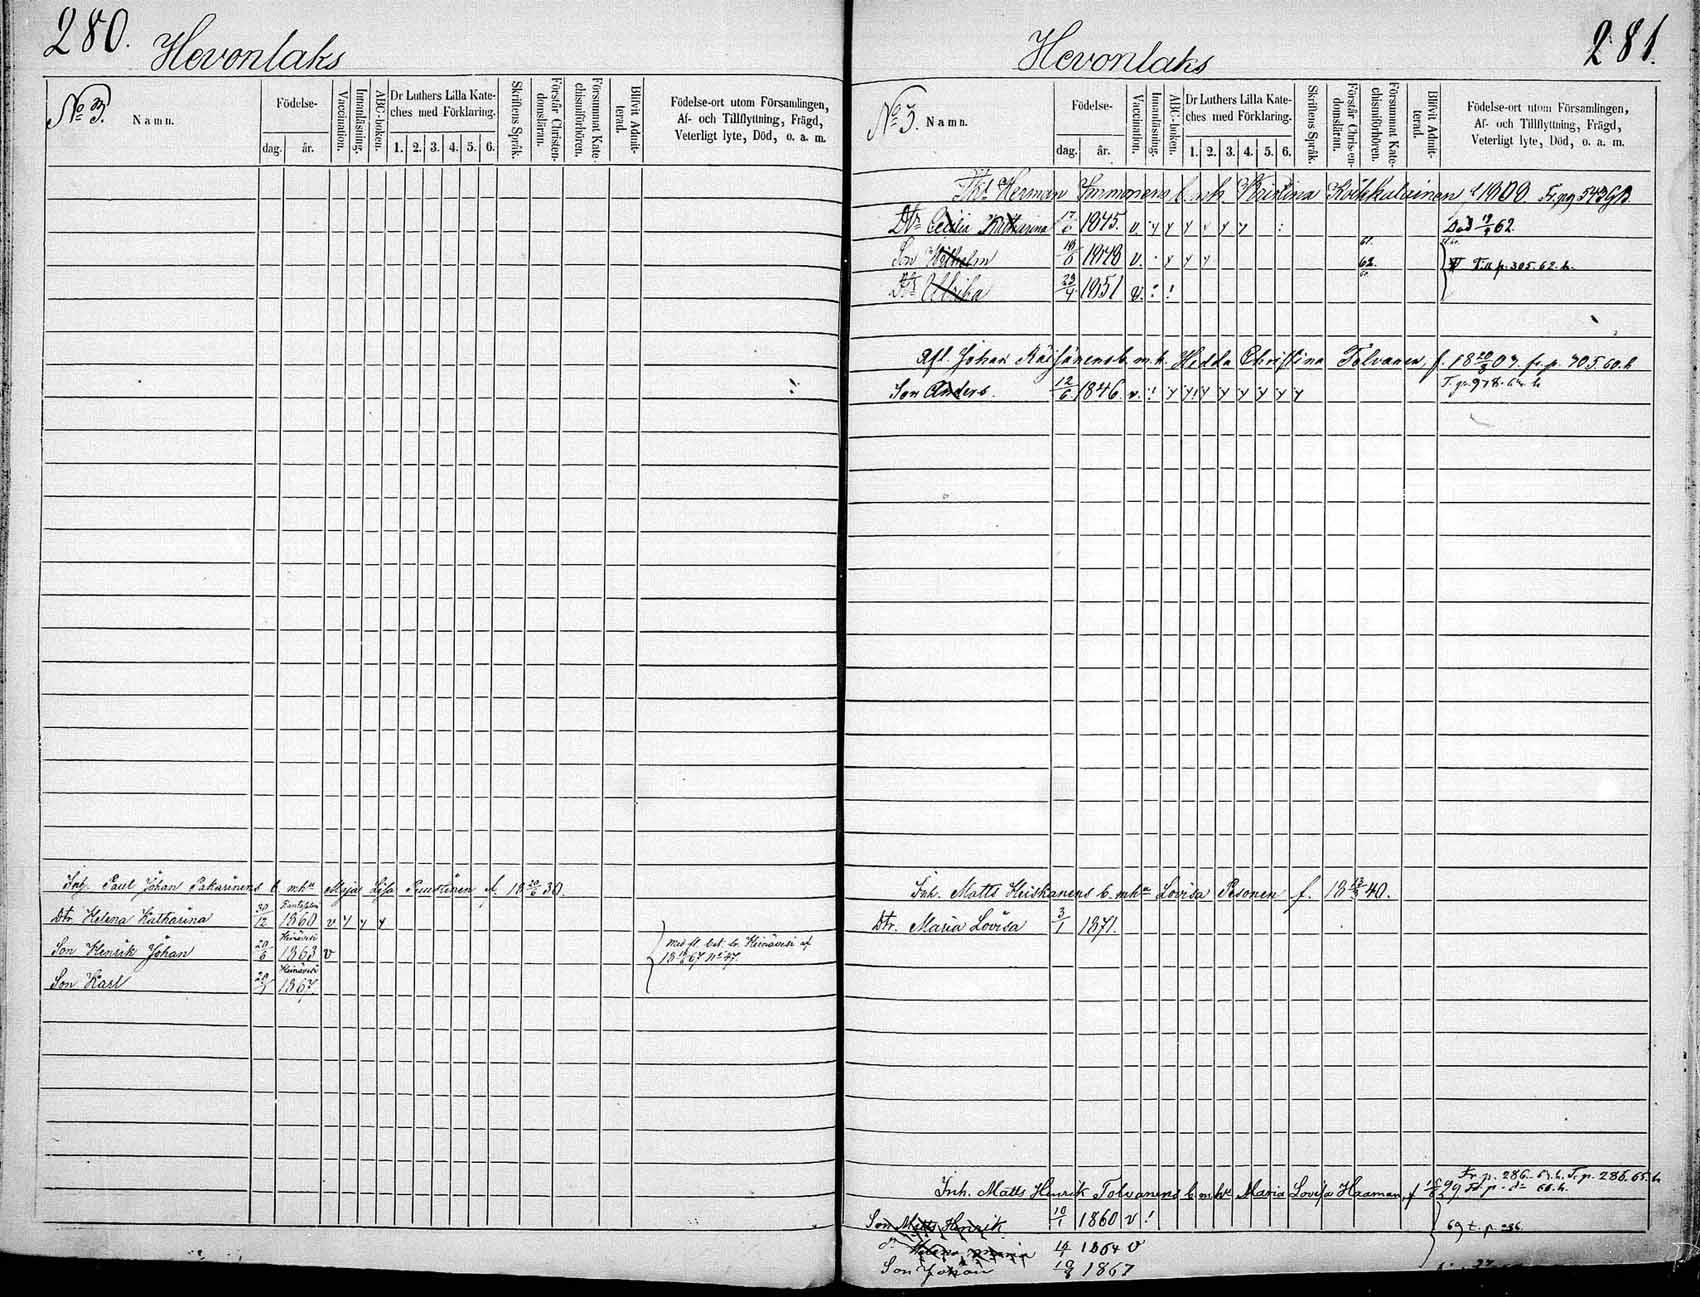 280.
Hevonlaks
No 3.
Namn.
Födelse-
dag.
år.
Vaccination.
Innanläsning.
ABC-boken.
Dr Luthers Lilla Kate-
ches med Förklaring.
1. 2. 3. 4. 5. 6.
Skriftens Språk.
Förstår Christen-
domsläran.
Försummat Kate-
chismiförhören.
Blifvit Admit-
terad.
Födelse-ort utom Församlingen,
Af- och Tillflyttning, Frägd,
Veterligt lyte, Död, o. a. m.
Inh. Paul Johan Pakarinens b. mha Maja Lisa Puustinen f. 18 30.
Dtr Helena Katharina 30/12 1860 v y y y
Heinävesi
Son Henrik Johan 1863 v
Heinävesi
Son Karl 1867.
med fl. bet. fr. Heinävesi af
67 No 47.
281.
Hevonlaks
No 3.
Namn.
Födelse-
dag.
år.
Vaccination.
Innanläsning.
ABC-boken.
Dr Luthers Lilla Kate-
ches med Förklaring.
1. 2. 3. 4. 5. 6.
Skriftens Språk.
Förstår Chris en-
domsläran.
Försummat Kate-
chismiförhören.
Blifvit Admit-
terad.
Födelse-ort utom Församlingen,
Af- och Tillflyttning, Frägd,
Veterligt lyte, Död, o. a. m.
Herman Immonens b. mh Kristina
Dtr Cecilia Katharina 1845. v. y y y y y y Död 62.
Son Wilhelm 1848 v. y y y 61. 62. Till p. 305. 62. h.
Dtr Ulrika 23/4 1851 v.
Afl. Johan Räisänens b. m. h. Hedda Christina Tolvanen, f. 18 07. fr. p. 705. 60. h
Son Anders. 12/6 1846. v. ! y y y y y y y y T. p. 978.
Inh. Matts Heiskanens b. mha Lovisa Pesonen f. 18 40.
Dtr. Maria Lovisa 3/1 1871.
Fr. p. 286. T. p. 286. 65. h
Inh. Matts Henrik Tolvanens b. mha Maria Lovisa Haaman, f
Son Matts Henrik 10/1 1860 v !
69 t. p. 286.
d. Helena Maria 1864 v
Son Johan 1867